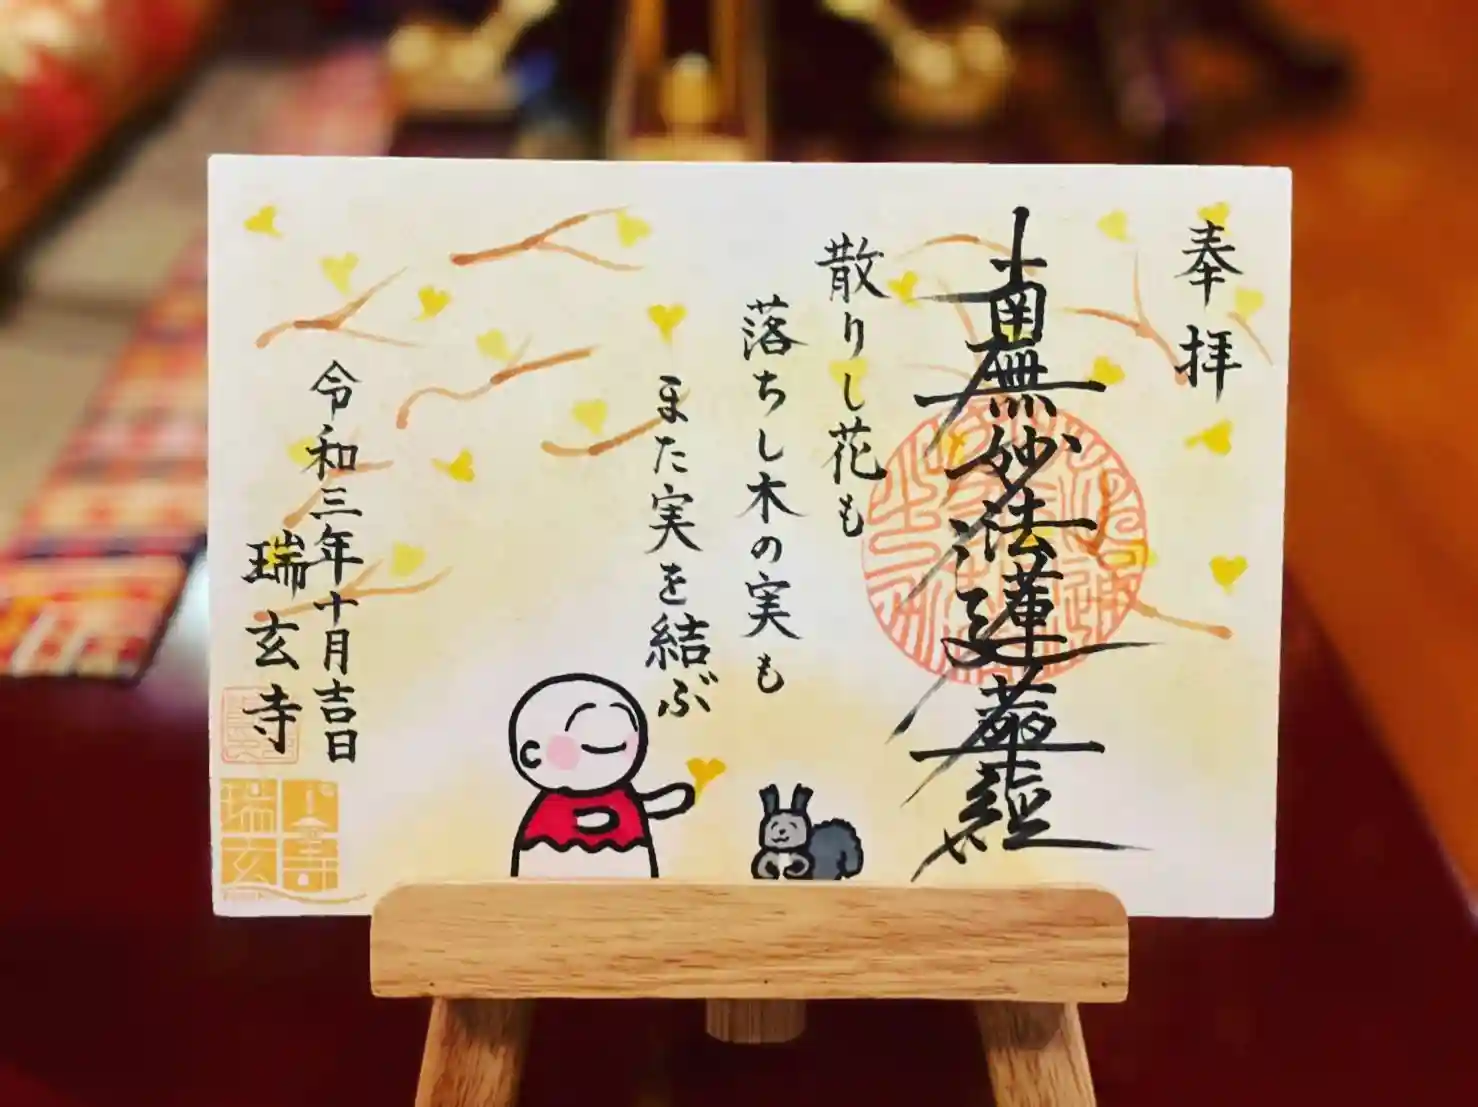 奉拝
南無妙法蓮華経
散りし花も
落ちし木の実も
また実を結ぶ
令和三年十月吉日
瑞玄寺
瑞玄寺